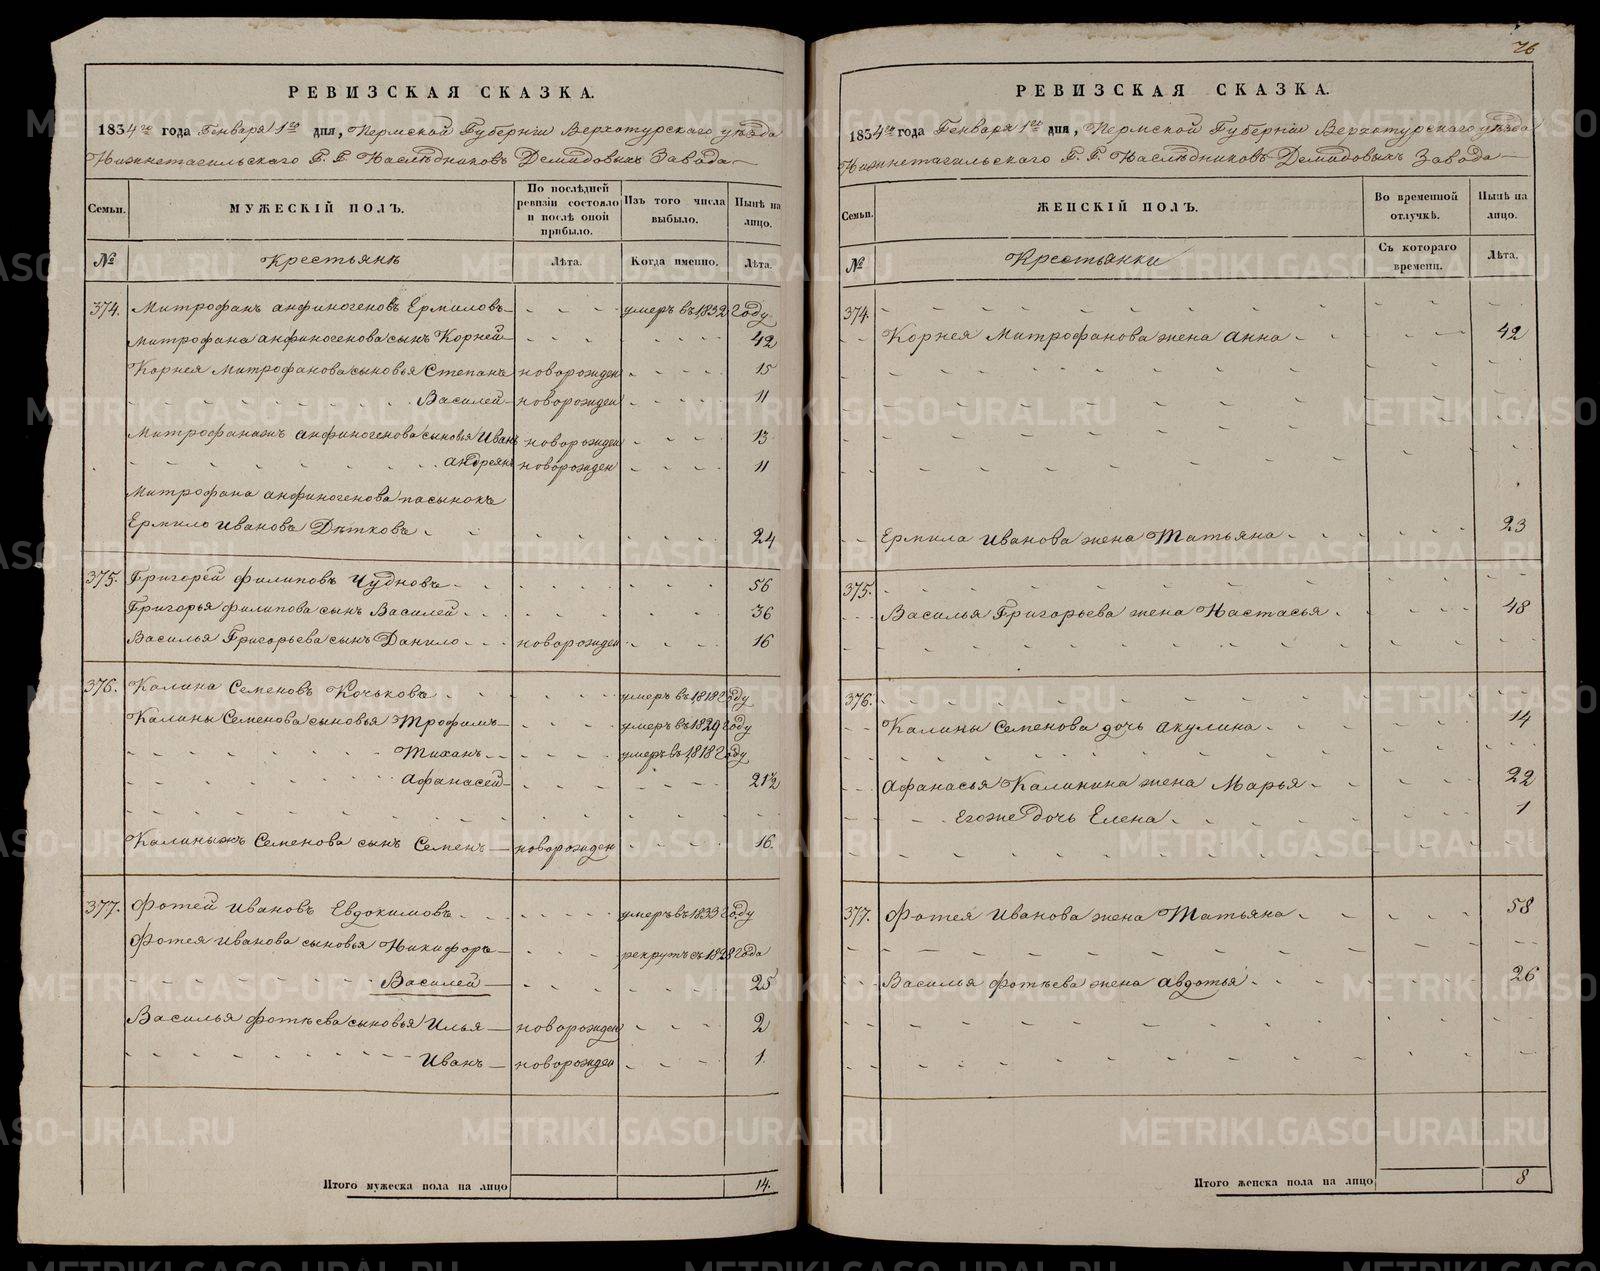 РЕВИЗСКАЯ СКАЗКА.
1834го года Генваря 1го дня, Пермской Губернiи Верхотурскаго уѣзда
Нижнетагильскаго Г. Г. Наслѣдниковъ Демидовыхъ Завода
Семьи. МУЖЕСКIЙ ПОЛЪ. По послѣдней ревизiи состояло и послѣ оной прибыло. Изъ того числа выбыло. Нынѣ на лицо.
№ Крестьянѣ Лѣта. Когда именно. Лѣта.
374. Митрофанъ Анфиногеновъ Ермиловъ умеръ въ 1832 Году
Митрофана Анфиногенова сынъ Корней 42
Корнея Митрофанова сыновья Степанъ новорожден 15
Василей новорожден 11
Митрофанажъ Анфиногенова сыновья Иванъ новорожден 13
Андреянъ новорожден 11
Митрофана Анфиногенова пасынокъ
Ермило Иванова Дѣтковъ 24
375. Григорей Филиповъ Чудновъ 56
Григорья Филипова сынъ Василей 36
Василья Григорьева сынъ Данило новорожден 16
376. Калина Семеновъ Кочьковъ умеръ въ 1818 Году
Калины Семенова сыновья Трофимъ умеръ въ 1829 Году
Тиханъ умеръ въ 1818 Году
Афанасей 21½
Калиныжъ Семенова сынъ Семенъ новорожден 16.
377. Фотей Ивановъ Евдокимовъ умеръ въ 1833 Году
Фотея Иванова сыновья Никифоръ рекрутъ съ 1828 Года
Василей 25
Василья Фотѣева сыновья Илья новорожден 2
Иванъ новорожден 1.
Итого мужеска пола на лицо 14.
76
РЕВИЗСКАЯ СКАЗКА.
1834го года Генваря 1го дня, Пермской Губернiи Верхотурскаго уѣзда
Нижнетагильскаго Г. Г. Наслѣдниковъ Демидовыхъ Завода
Семьи. ЖЕНСКIЙ ПОЛЪ. Во временной отлучкѣ. Нынѣ на лицо.
№ Крестьянки Съ котораго времени. Лѣта.
374.
Корнея Митрофанова жена Анна 42
Ермила Иванова жена Татьяна 23
375.
Василья Григорьева жена Настасья 48
376.
Калины Семенова дочь Акулина 14
Афанасья Калинина жена Марья 22
Егоже дочь Елена 1
377. Фотея Иванова жена Татьяна 58
Василья Фотѣева жена Авдотья 26
Итого женска пола на лицо 8
METRIKI.GASO-URAL.RU